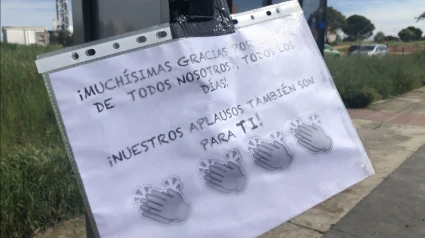 ¡MUCHÍSIMAS GRACIAS POR
DE TODOS NOSOTROS, TODOS LOS
DÍAS!
¡NUESTROS APLAUSOS TAMBIÉN SON
PARA TI!